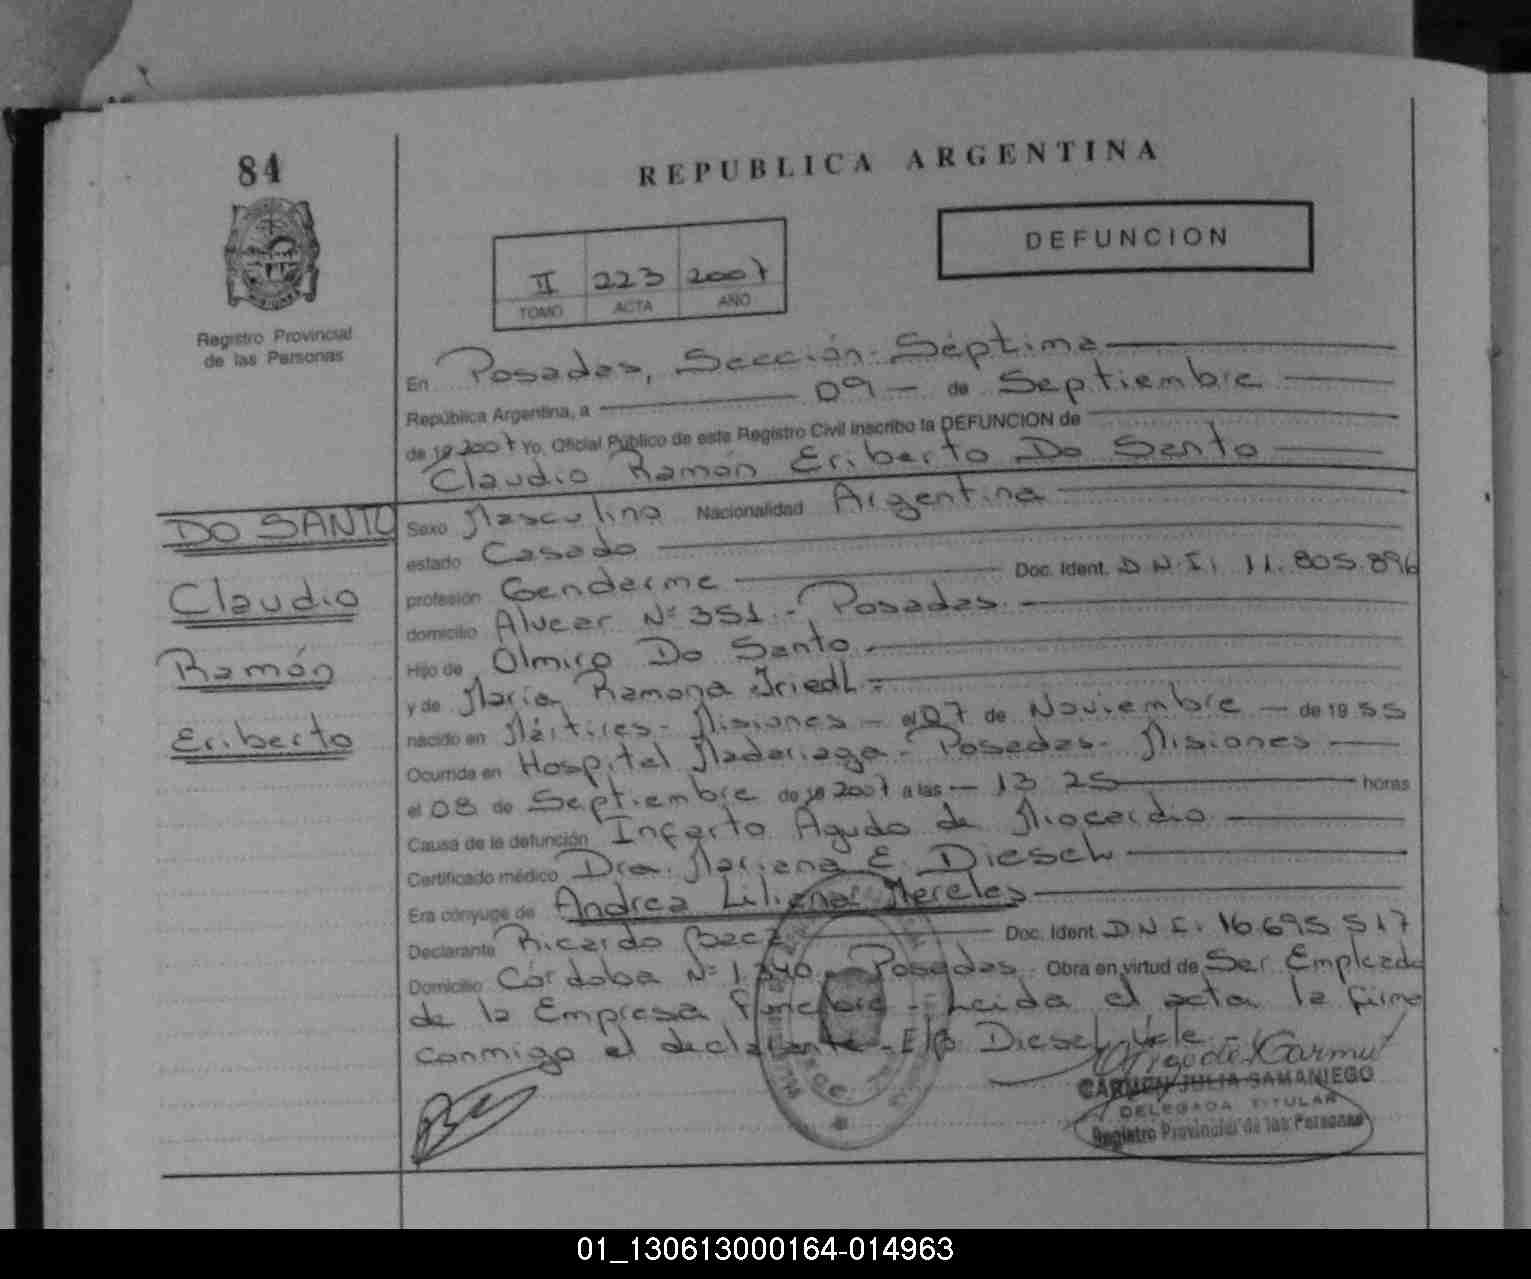 84
REPUBLICA ARGENTINA
DEFUNCION
II 223 2007
TOMO ACTA AÑO
Registro Provincial
de las Personas
En Posadas, Sección Séptima
República Argentina, a 09 de Septiembre
de 19 2007 Yo, Oficial Público de este Registro Civil inscribo la DEFUNCION de
Claudio Ramón Eriberto Do Santo
DO SANTO
Claudio
Ramón
Eriberto
Sexo Masculino Nacionalidad Argentina
estado Casado
profesión Gendarme Doc. Ident. D.N.I. 11.805.896
domicilio Alvear Nº 351 - Posadas
Hijo de Olmiro Do Santo
y de María Ramona Friedl
nacido en Mártires - Misiones - el 07 de Noviembre de 19 55
Ocurrida en Hospital Madariaga - Posadas - Misiones
el 08 de Septiembre de 19 2007 a las 13 25 horas
Causa de la defunción Infarto Agudo de Miocardio
Certificado médico Dra. Mariana E. Diesel
Era cónyuge de Andrea Liliana Mereles
Declarante Ricardo Baez Doc. Ident. D.N.I. 16.695.517
Domicilio Córdoba Nº 1.340 - Posadas. Obra en virtud de Ser Empleado
de la Empresa Fúnebre - Leida el acta la firma
conmigo el declarante - E/R Diesel Vale -
CARMEN JULIA SAMANIEGO
DELEGADA TITULAR
Registro Provincial de las Personas
01_130613000164-014963